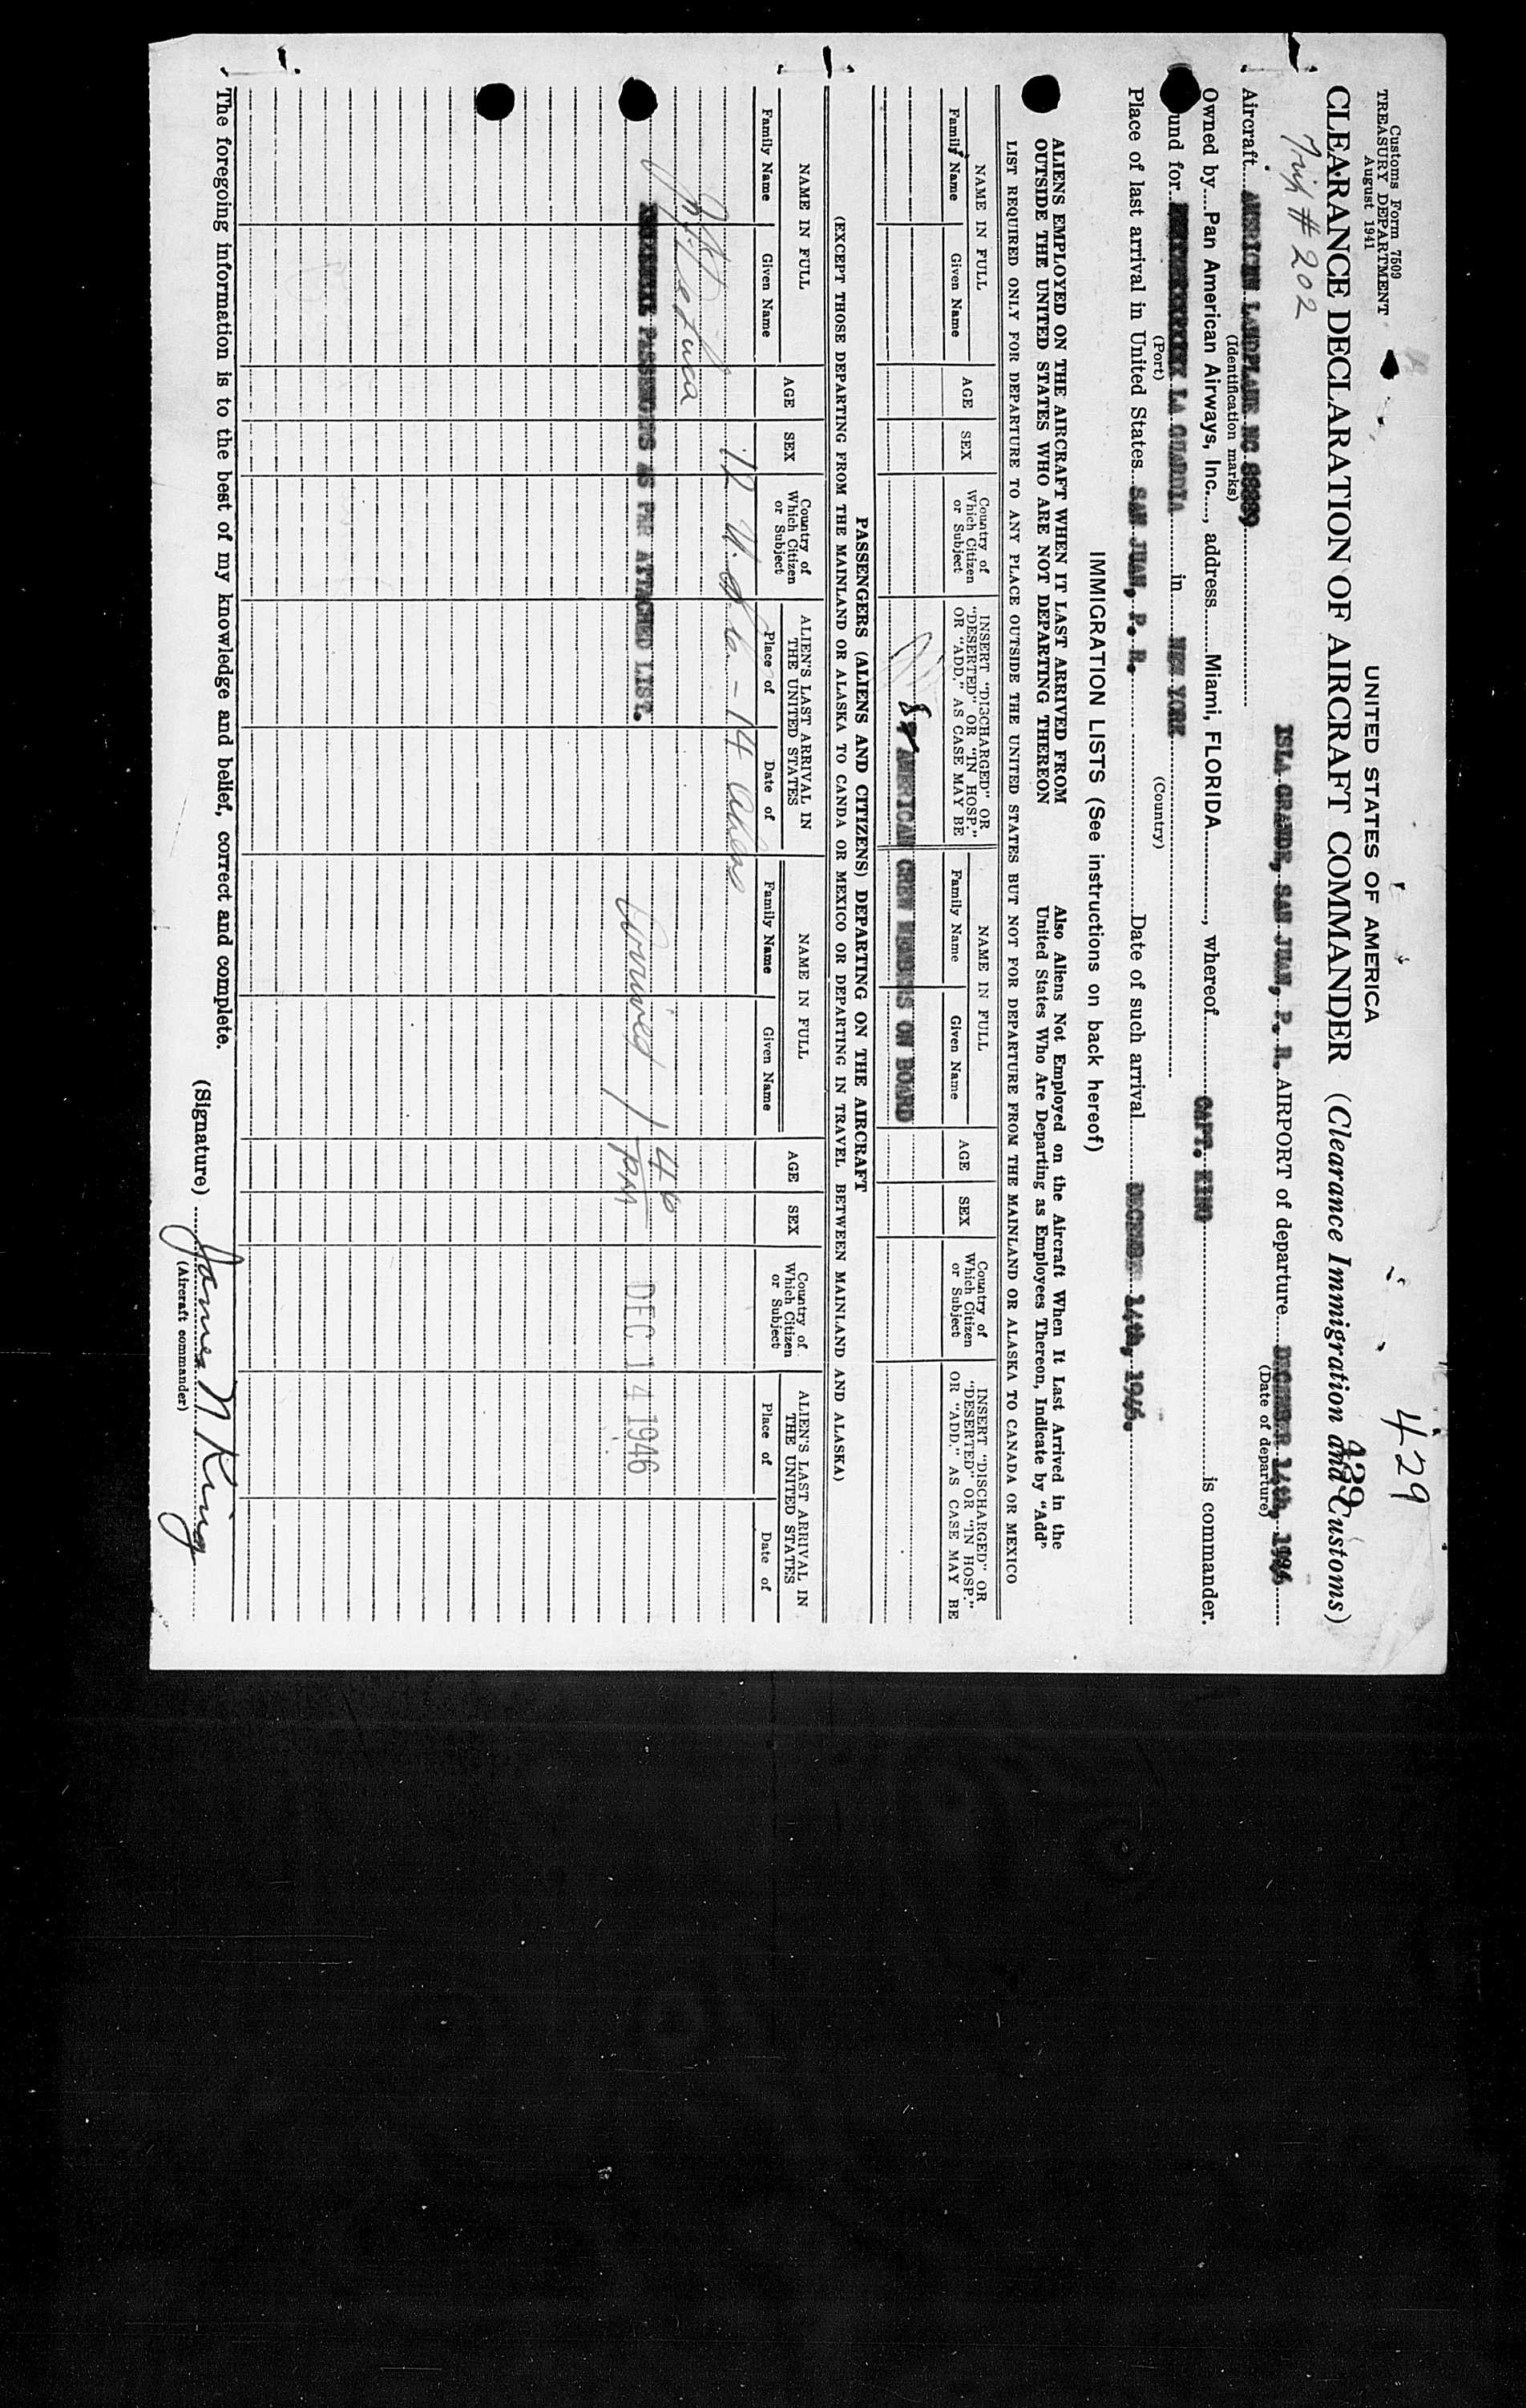 Customs Form 7509
TREASURY DEPARTMENT
August 1941
UNITED STATES OF AMERICA
429
CLEARANCE DECLARATION OF AIRCRAFT COMMANDER (Clearance Immigration and Customs)
429
Trip # 202
ISLA GRANDE, SAN JUAN, P. R. AIRPORT of departure DECEMBER 14th, 1946
(Date of departure)
Aircraft AMERICAN LANDPLANE NC
(Identification marks)
Owned by Pan American Airways, Inc., address Miami, FLORIDA, whereof CAPT. KING is commander.
und for LA GUARDIA in NEW YORK
(Port) (Country)
Place of last arrival in United States SAN JUAN, P. R. Date of such arrival DECEMBER 14th, 1946.
IMMIGRATION LISTS (See instructions on back hereof)
ALIENS EMPLOYED ON THE AIRCRAFT WHEN IT LAST ARRIVED FROM OUTSIDE THE UNITED STATES WHO ARE NOT DEPARTING THEREON
Also Aliens Not Employed on the Aircraft When It Last Arrived in the United States Who Are Departing as Employees Thereon, Indicate by "Add"
LIST REQUIRED ONLY FOR DEPARTURE TO ANY PLACE OUTSIDE THE UNITED STATES BUT NOT FOR DEPARTURE FROM THE MAINLAND OR ALASKA TO CANADA OR MEXICO
NAME IN FULL AGE SEX Country of Which Citizen or Subject INSERT "DISCHARGED" OR "DESERTED" OR "IN HOSP." OR "ADD," AS CASE MAY BE NAME IN FULL AGE SEX Country of Which Citizen or Subject INSERT "DISCHARGED" OR "DESERTED" OR "IN HOSP." OR "ADD," AS CASE MAY BE
Family Name Given Name Family Name Given Name
8 AMERICAN CREW MEMBERS ON BOARD
PASSENGERS (ALIENS AND CITIZENS) DEPARTING ON THE AIRCRAFT
(EXCEPT THOSE DEPARTING FROM THE MAINLAND OR ALASKA TO CANDA OR MEXICO OR DEPARTING IN TRAVEL BETWEEN MAINLAND AND ALASKA)
NAME IN FULL AGE SEX Country of Which Citizen or Subject ALIEN'S LAST ARRIVAL IN THE UNITED STATES NAME IN FULL AGE SEX Country of Which Citizen or Subject ALIEN'S LAST ARRIVAL IN THE UNITED STATES
Family Name Given Name Place of Date of Family Name Given Name Place of Date of
14 Aliens
PASSENGERS AS PER ATTACHED LIST.
Arrived 1 40 PM
DEC 14 1946
The foregoing information is to the best of my knowledge and belief, correct and complete.
(Signature) James N King
(Aircraft commander)